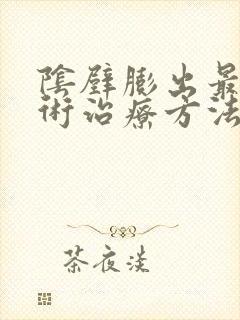 陰壁膨出最
術治療方法
茶夜淡